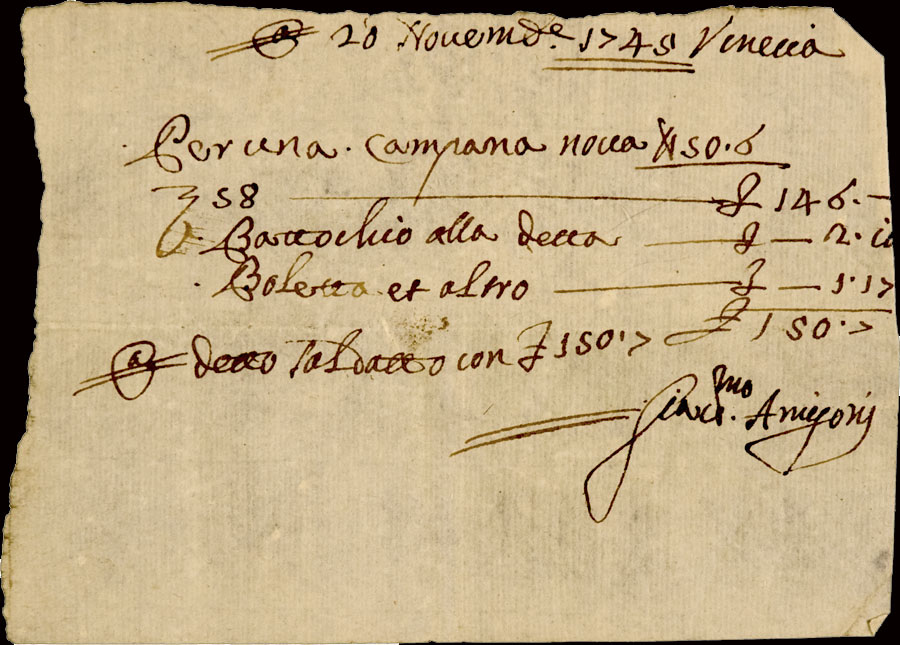 20 Novembe. 1745 Venecia
Per una campana nova N 50.6
58 £ 146.—
Battochio alla detta £ — 2.10
Boletta et altro £ — 1:17
£ 150:7
detto saldatto con £ 150:7
Giac.mo Arrigoni